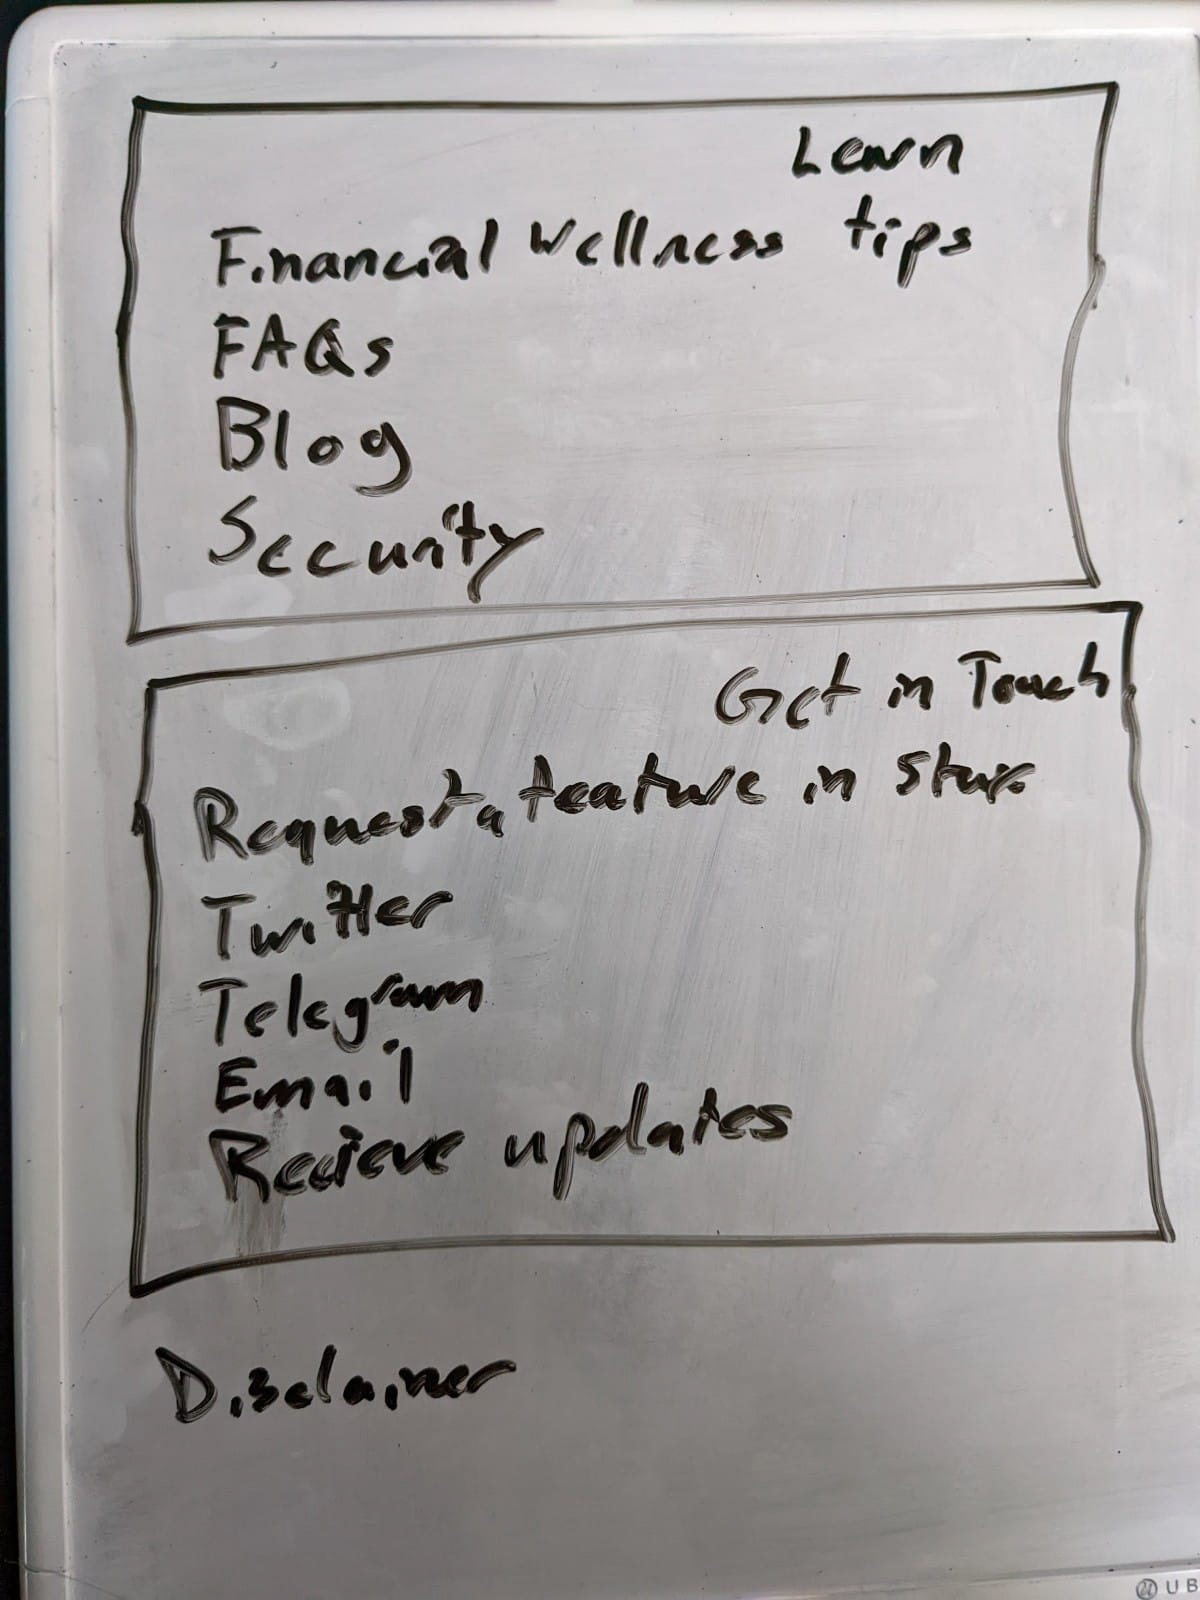 Learn
Financial Wellness tips
FAQs
Blog
Security
Get in Touch
Request a feature in
Twitter
Telegram
Email
Recieve updates
Disclaimer
UB